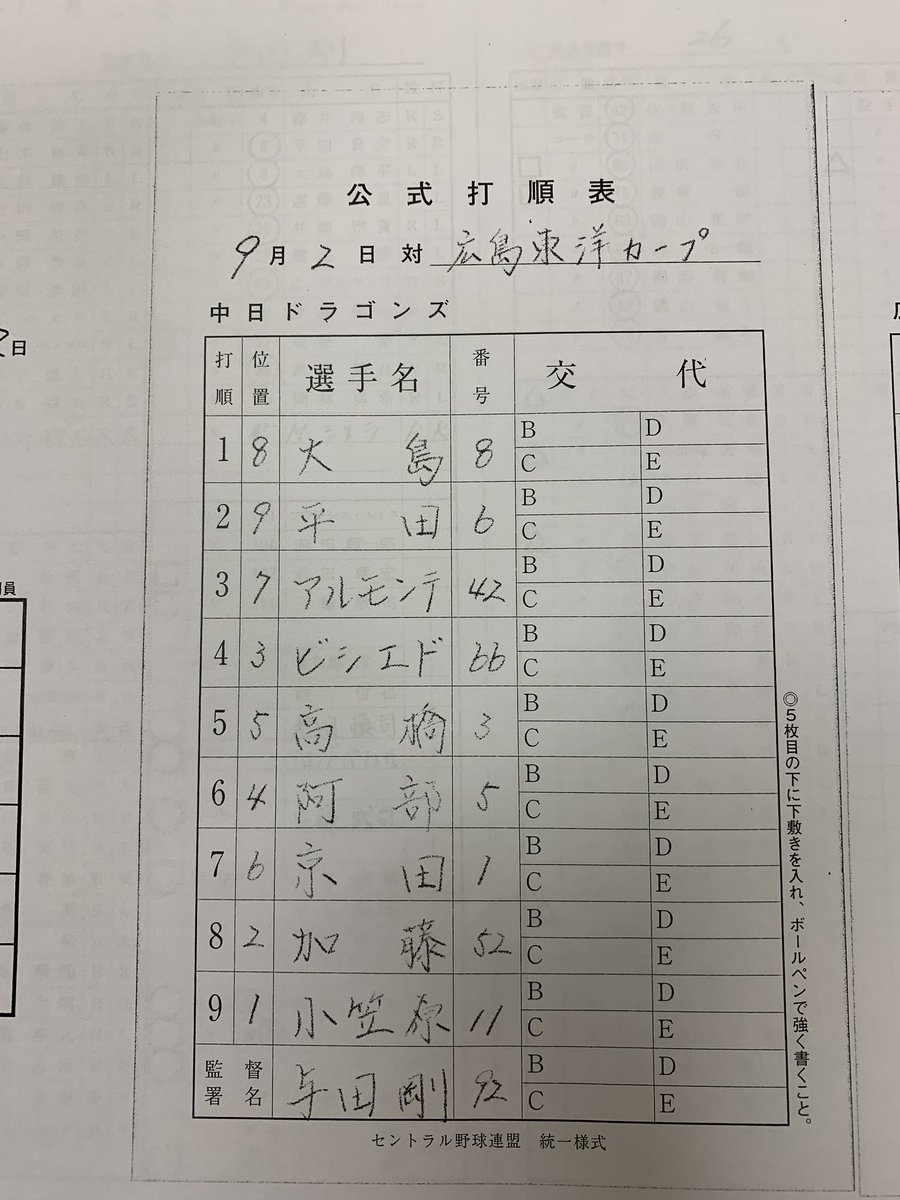 公式打順表
9月2日対 広島東洋カープ
中日ドラゴンズ
打順 位置 選手名 番号 交代
1 8 大島 8 B D C E
2 9 平田 6 B D C E
3 7 アルモンテ 42 B D C E
4 3 ビシエド 66 B D C E
5 5 高橋 3 B D C E
6 4 阿部 5 B D C E
7 6 京田 1 B D C E
8 2 加藤 52 B D C E
9 1 小笠原 11 B D C E
監督署名 与田剛 92 B D C E
セントラル野球連盟 統一様式
◎5枚目の下に下敷きを入れ、ボールペンで強く書くこと。
日